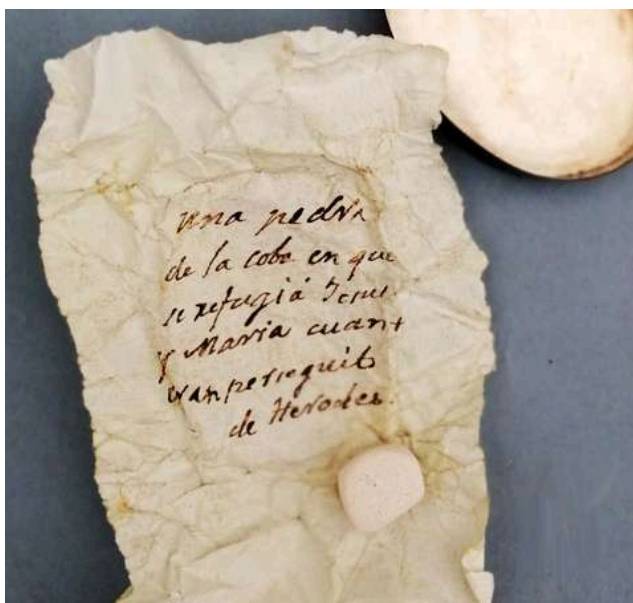 una pedra
de la coba en que
se refugiá Jesus
y Maria cuant
eran perseguits
de Herodes.